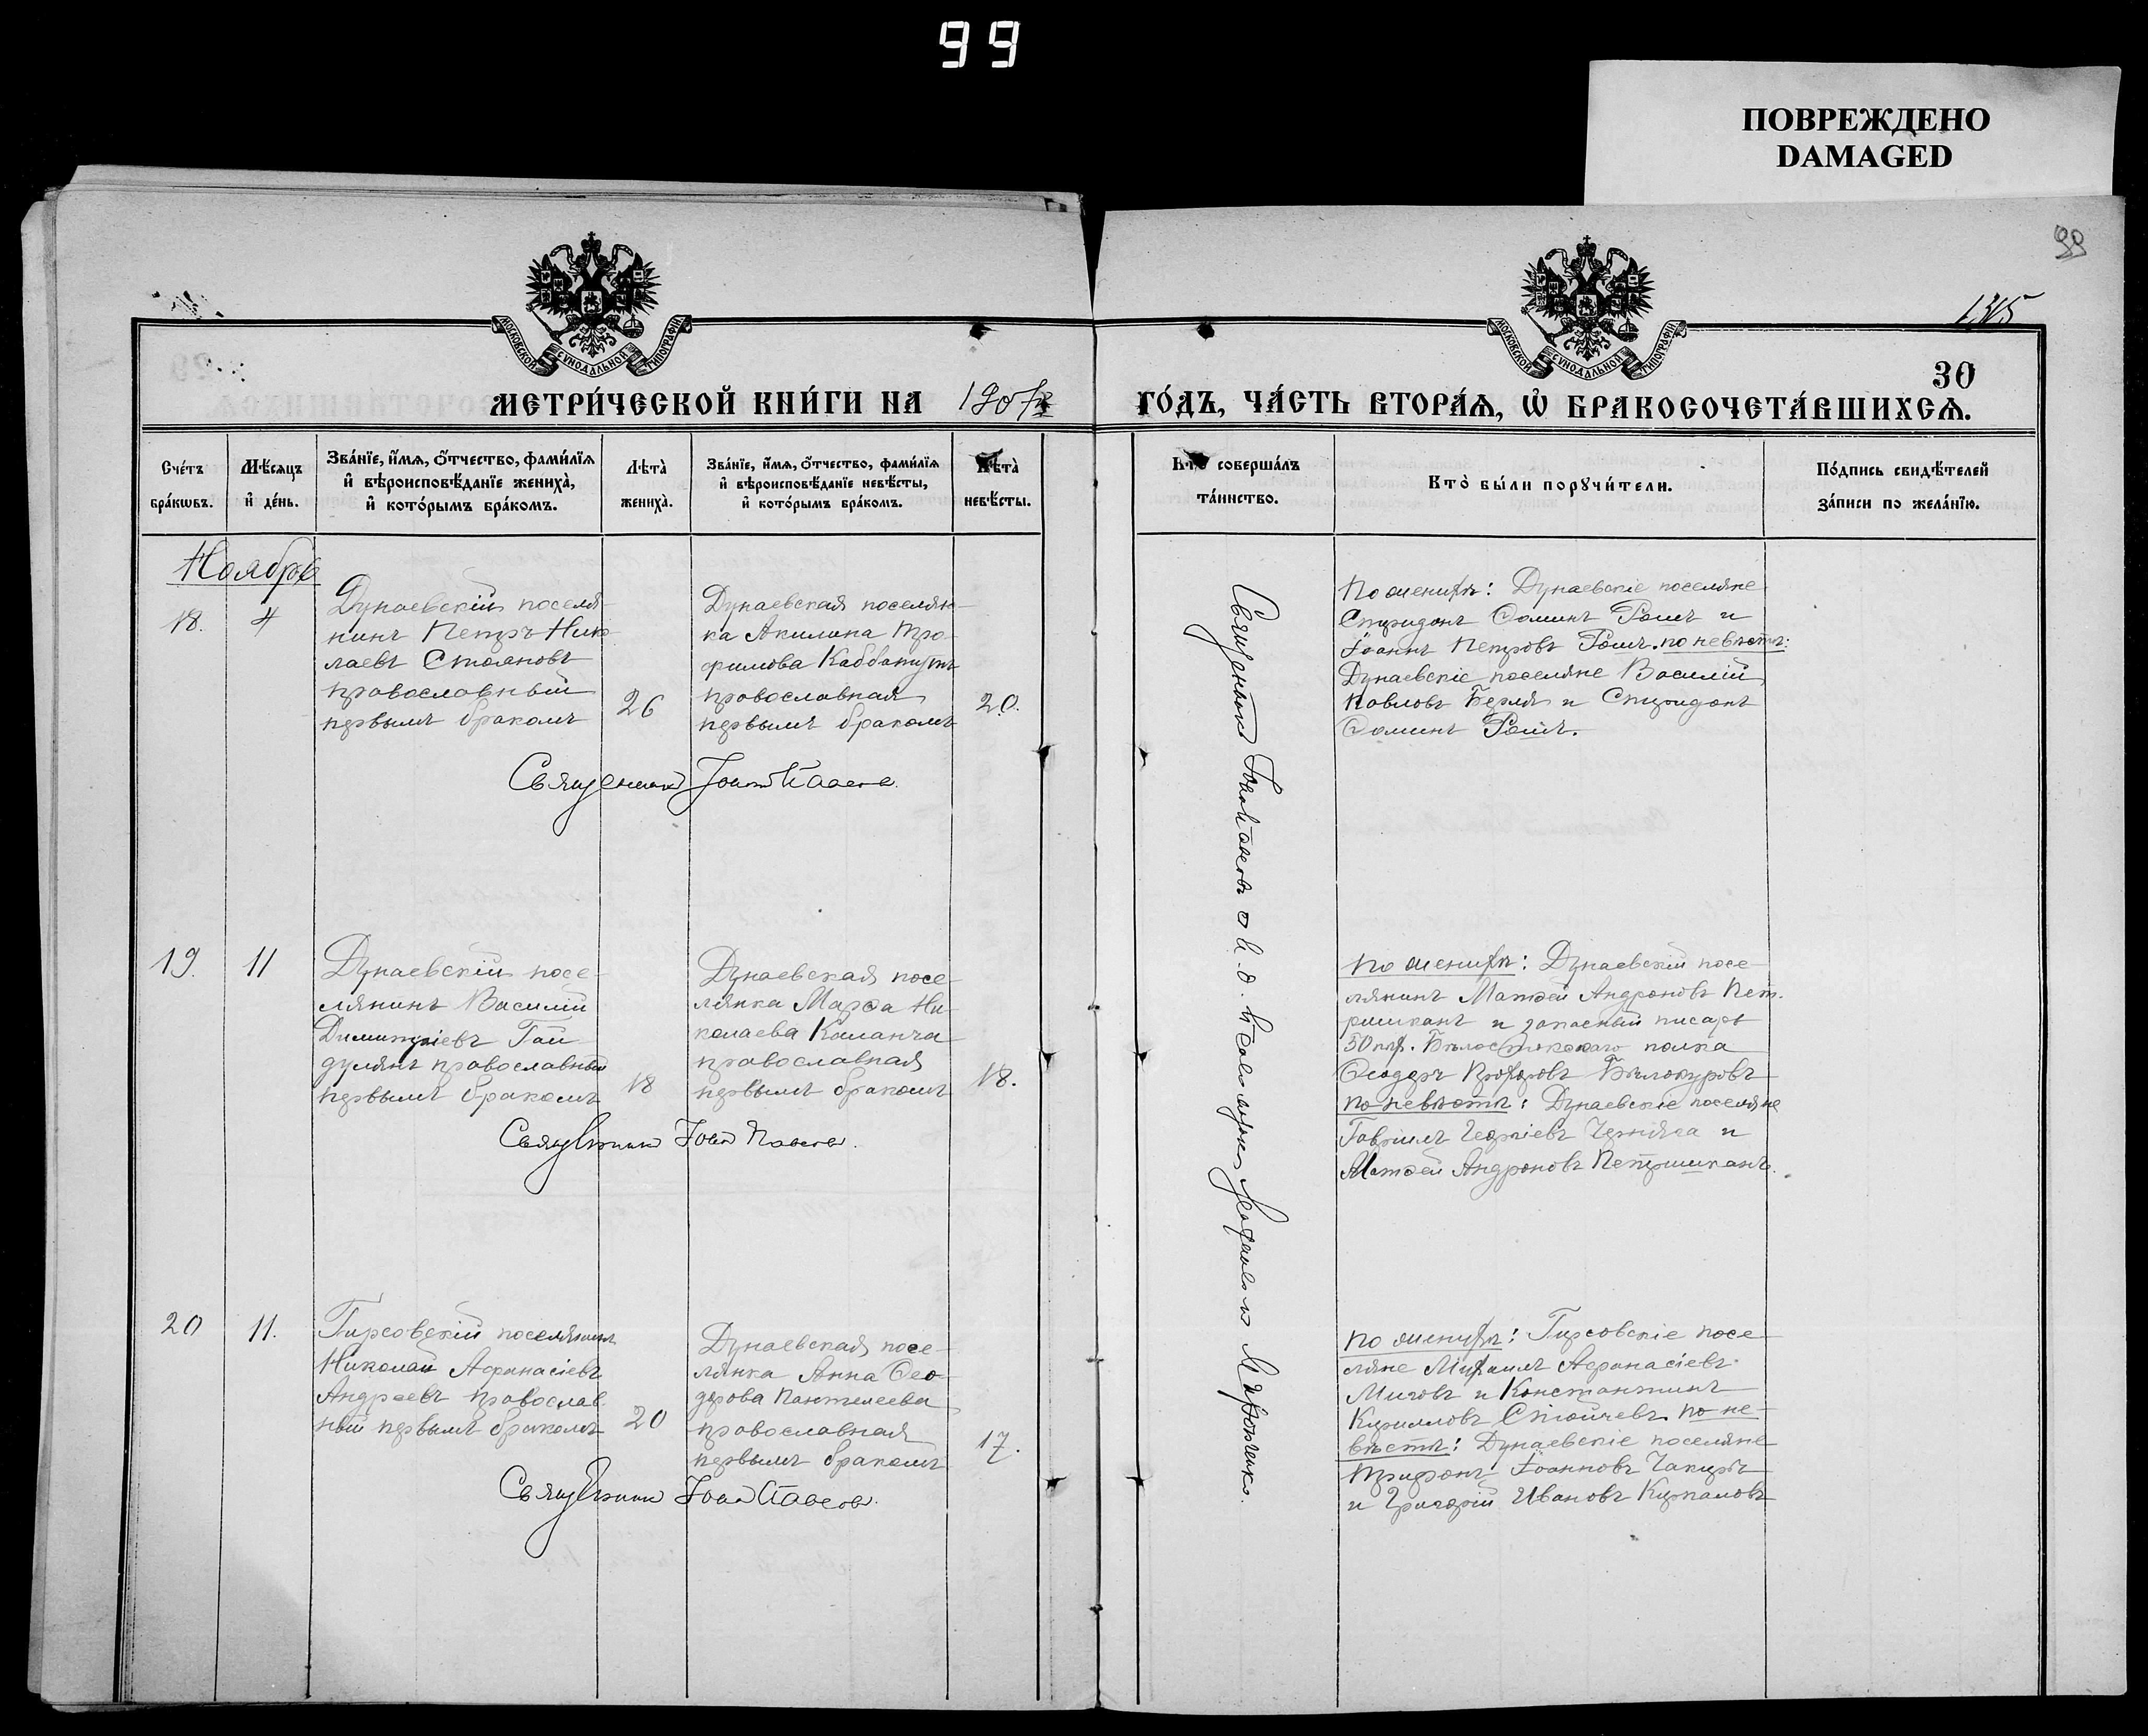 99
ПОВРЕЖДЕНО
DAMAGED
99
135
МОСКОВСКОЙ СУНОДАЛЬНОЙ ТИПОГРАФІИ
МОСКОВСКОЙ СУНОДАЛЬНОЙ ТИПОГРАФІИ
30
МЕТРИ́ЧЕСКОЙ КНИ́ГИ НА 1907
ГО́ДЪ, ЧА́СТЬ ВТОРА́Ѧ, Ѡ҆ БРАКОСОЧЕТА́ВШИХСѦ.
Сче́тъ
бра́кѡвъ.
Мѣ́сяцъ
и҆ де́нь.
Зва́нїе, и҆́мѧ, о҆́тчество, фами́лїѧ
и҆ вѣроисповѣ́данїе жениха̀,
и҆ кото́рымъ бра́комъ.
Лѣта̀
жениха̀.
Зва́нїе, и҆́мѧ, о҆́тчество, фами́лїѧ
и҆ вѣроисповѣ́данїе невѣ́сты,
и҆ кото́рымъ бра́комъ.
Лѣта̀
невѣ́сты.
Кто̀ соверша́лъ
та́инство.
Кто̀ бы́ли порꙋчи́тели.
По́дпись свидѣ́телей
за́писи по жела́нїю.
Ноября
18.
4
Дунаевскій поселя-
нинъ Петръ Нико
лаевъ Стояновъ
православный
первымъ бракомъ
26
Дунаевская поселян-
ка Акилина Тро-
фимова
православная
первымъ бракомъ
20.
Священникъ
По женихѣ: Дунаевскіе поселяне
Спиридонъ Ѳоминъ и
Іоаннъ Петровъ по невѣстѣ:
Дунаевскіе поселяне Василій
Павловъ и Спиридонъ
Ѳоминъ
Священникъ
19.
11
Дунаевскій посе-
лянинъ Василій
Димитріевъ Гай
дулянъ православный
первымъ бракомъ
18
Дунаевская посе-
лянка Марѳа Ни-
колаева Каланча
православная
первымъ бракомъ
18.
Священникъ
По женихѣ: Дунаевскій посе-
лянинъ Матѳей Андроновъ Пет-
ришканъ и запасный писарь
50 пѣх. Бѣлостокскаго полка
Ѳеодоръ Прохоровъ Бѣлокуровъ
по невѣстѣ: Дунаевскіе поселяне
Гавріилъ Георгіевъ и
Матѳей Андроновъ Петришканъ.
20
11.
Гирсовскій поселянинъ
Николай Афанасіевъ
Андреевъ православ-
ный первымъ бракомъ
20
Дунаевская посе-
лянка Анна Ѳео-
дорова Пантелеева
православная
первымъ бракомъ
17.
Священникъ
по женихѣ: Гирсовскіе посе-
ляне Михаилъ Афанасіевъ
и Константинъ
Кирилловъ Стойчевъ по не-
вѣстѣ: Дунаевскіе поселяне
Трифонъ Іоанновъ Чакиръ
и Григорій Ивановъ